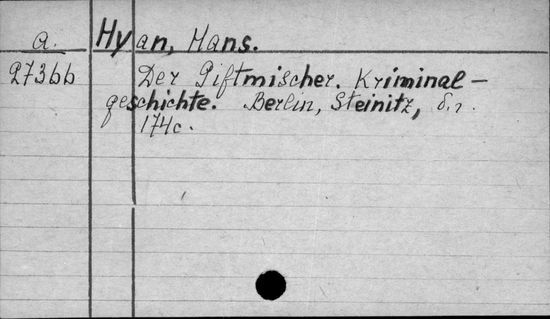 a. Hyan, Hans.
27366 Der Giftmischer. Kriminal-
geschichte. Berlin, Steinitz,
174c.